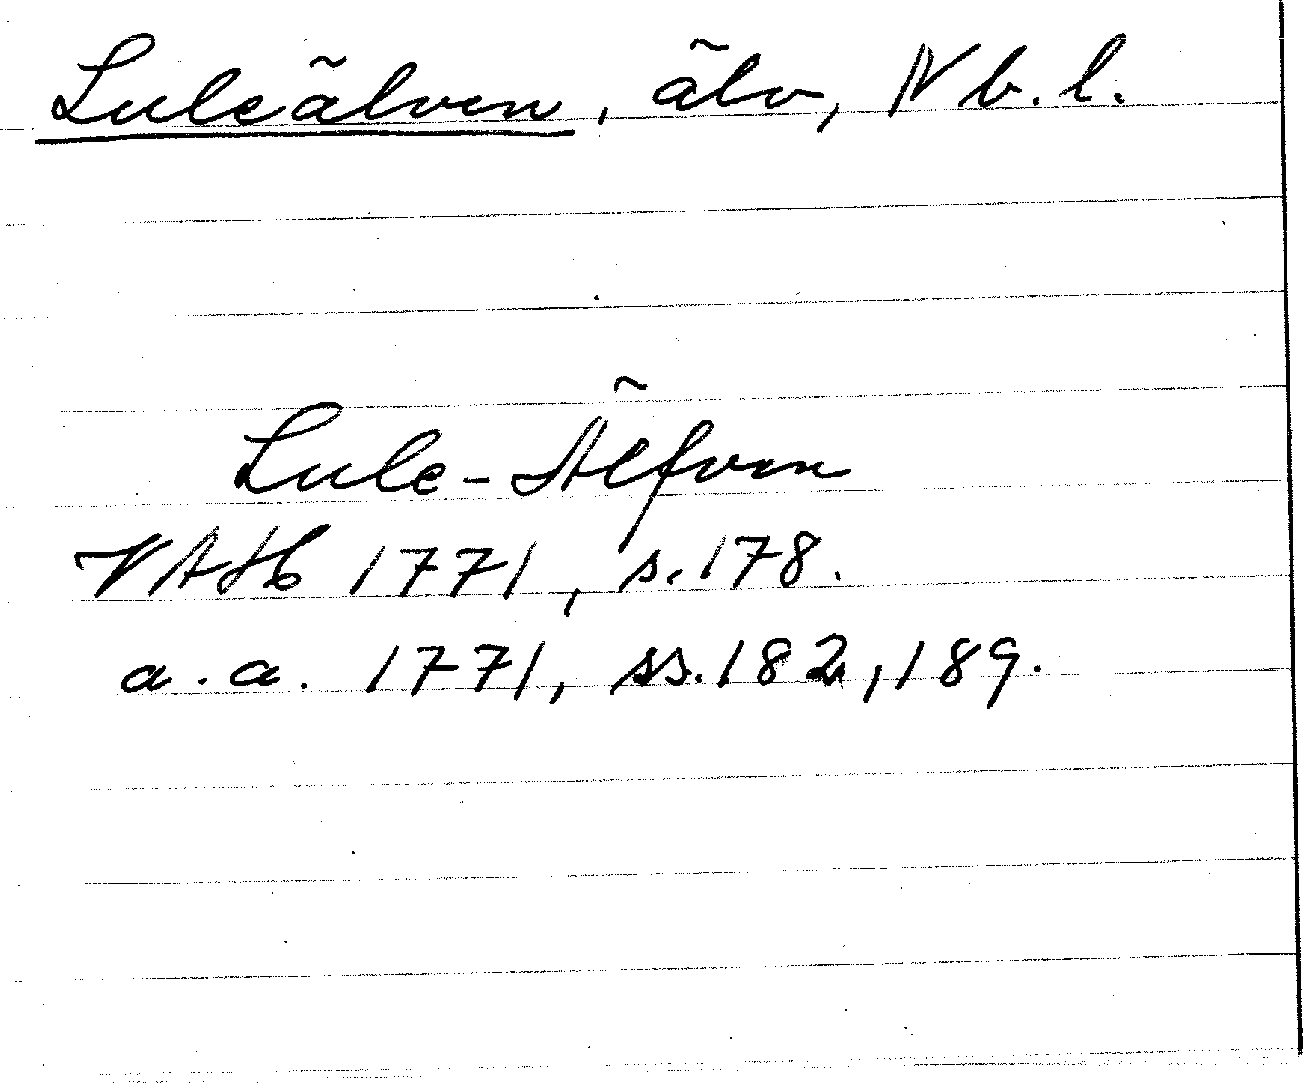 Luleälven, älv, Nb.l.
Lule-Älfven
VAH 1771, s.178.
a.a. 1771, ss.182, 189.